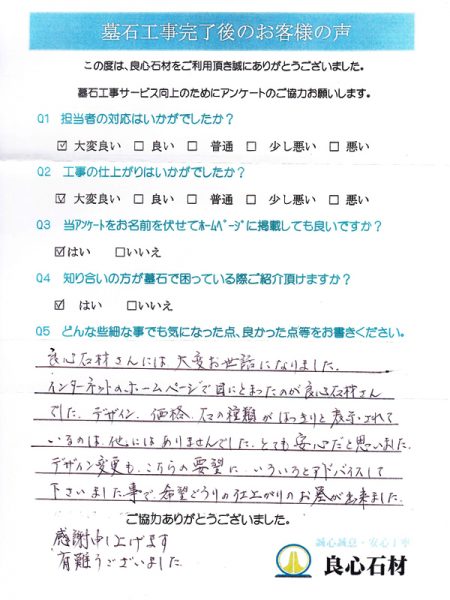 墓石工事完了後のお客様の声
この度は、良心石材をご利用頂き誠にありがとうございました。
墓石工事サービス向上のためにアンケートのご協力お願いします。
Q1 担当者の対応はいかがでしたか?
☑ 大変良い □ 良い □ 普通 □ 少し悪い □ 悪い
Q2 工事の仕上がりはいかがでしたか?
☑ 大変良い □ 良い □ 普通 □ 少し悪い □ 悪い
Q3 当ｱﾝｹｰﾄをお名前を伏せてﾎｰﾑﾍﾟｰｼﾞに掲載しても良いですか?
☑はい □いいえ
Q4 知り合いの方が墓石で困っている際ご紹介頂けますか?
☑ はい □いいえ
Q5 どんな些細な事でも気になった点、良かった点等をお書きください。
良心石材さんには、大変お世話になりました。
インターネットのホームページで目にとまったのが良心石材さん
でした。デザイン、価格、石の種類がはっきりと表示されて
いるのは、他にはありませんでした。とても安心だと思いました。
デザイン変更も、こちらの要望に、いろいろとアドバイスして
下さいました事で、希望どうりの仕上がりのお墓が出来ました。
ご協力ありがとうございました。
感謝申し上げます
有難うございました
誠心誠意・安心工事
良心石材